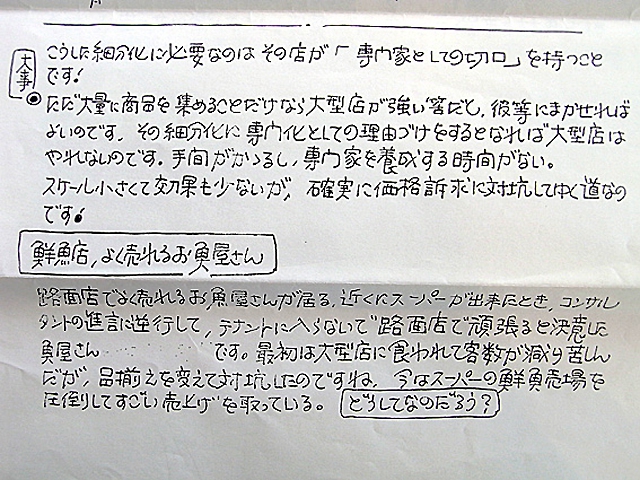 大事
こうした細分化に必要なのは その店が「専門家としての切口」を持つこと
です!
ただ大量に商品を集めることだけなら大型店が強い答だと、彼等にまかせれば
よいのです。その細分化に専門化としての理由づけをするとなれば大型店は
やれないのです。手間がかゝるし、専門家を養成する時間がない。
スケール小さくて効果も少ないが、確実に価格訴求に対坑してゆく道なの
です!
鮮魚店、よく売れるお魚屋さん
路面店でよく売れるお魚屋さんが居る。近くにスーパーが出来たとき、コンサル
タントの進言に逆行して、テナントに入らないで路面店で頑張ると決意した
魚屋さん です。最初は大型店に食われて客数が減り苦しん
だが、品揃えを変えて対坑したのですね。今はスーパーの鮮魚売場を
圧倒してすごい売上げを取っている。どうしてなのだろう?